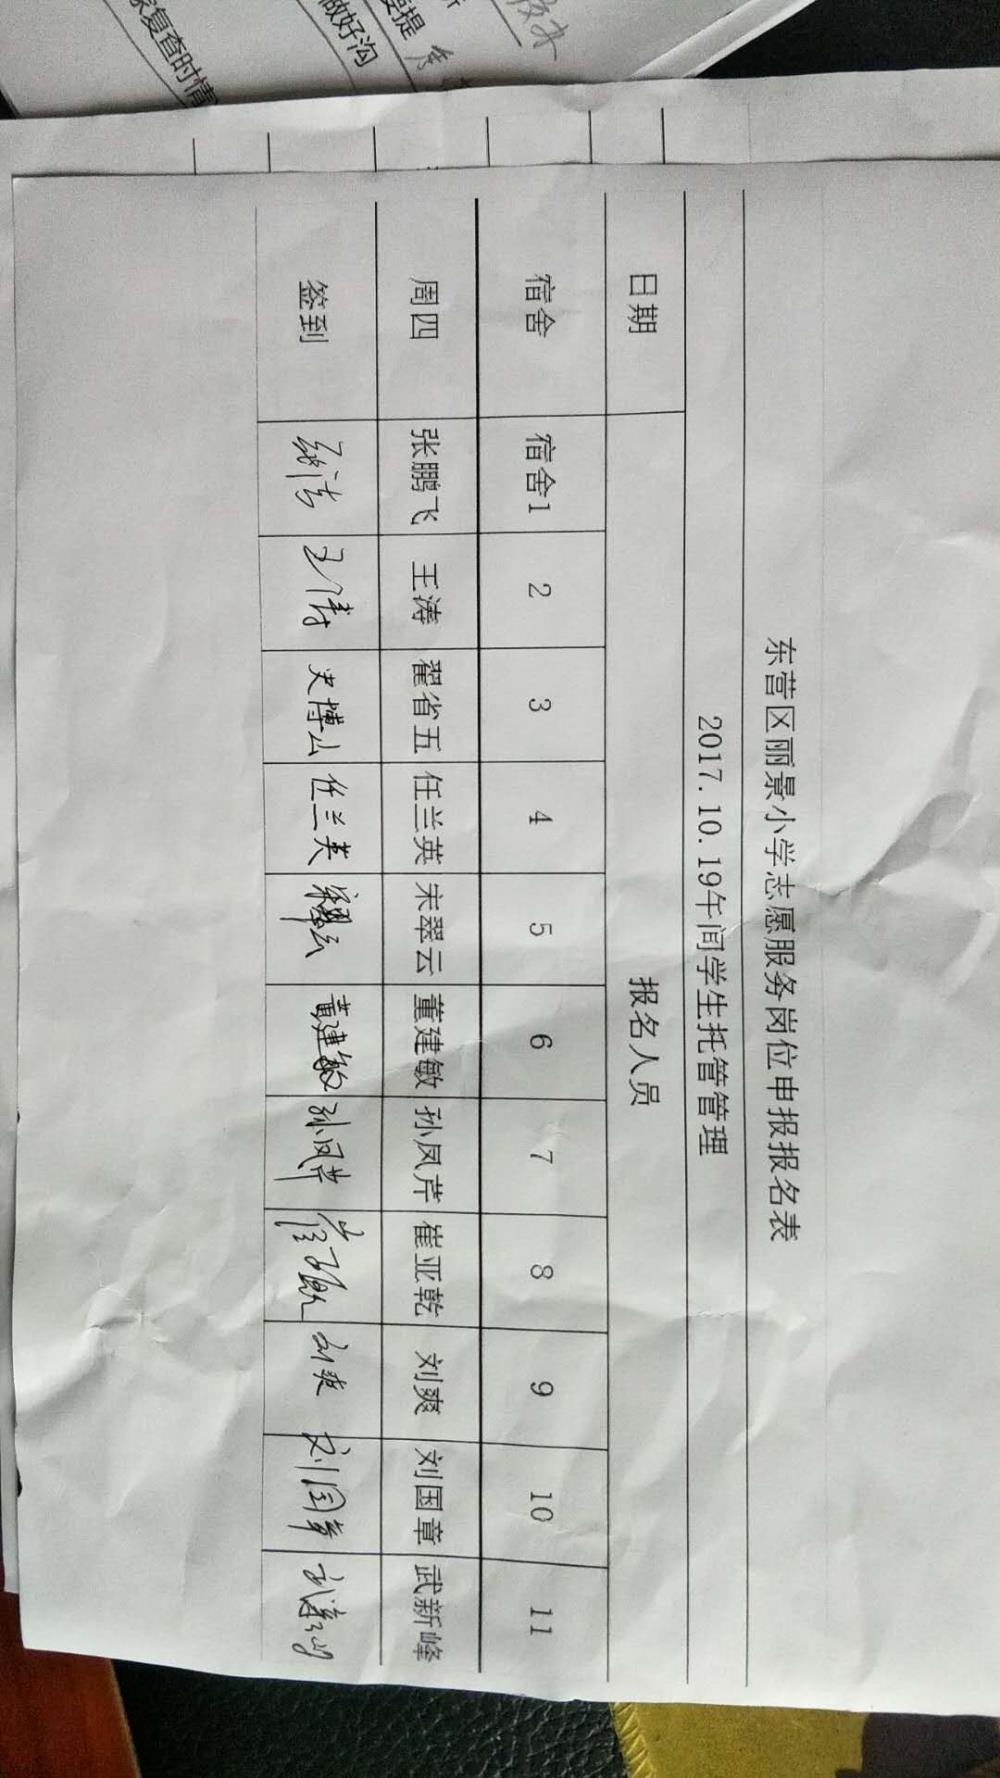 东营区丽景小学志愿服务岗位申报报名表
2017.10.19午间学生托管管理
日期 报名人员
宿舍 宿舍1 2 3 4 5 6 7 8 9 10 11
周四 张鹏飞 王涛 翟省五 任兰英 宋翠云 董建敏 孙凤芹 崔亚乾 刘爽 刘国章 武新峰
签到 王涛 史博山 任兰英 宋翠云 董建敏 孙凤芹 崔亚乾 刘爽 刘国章 武新峰
家复查时情
做好沟
提